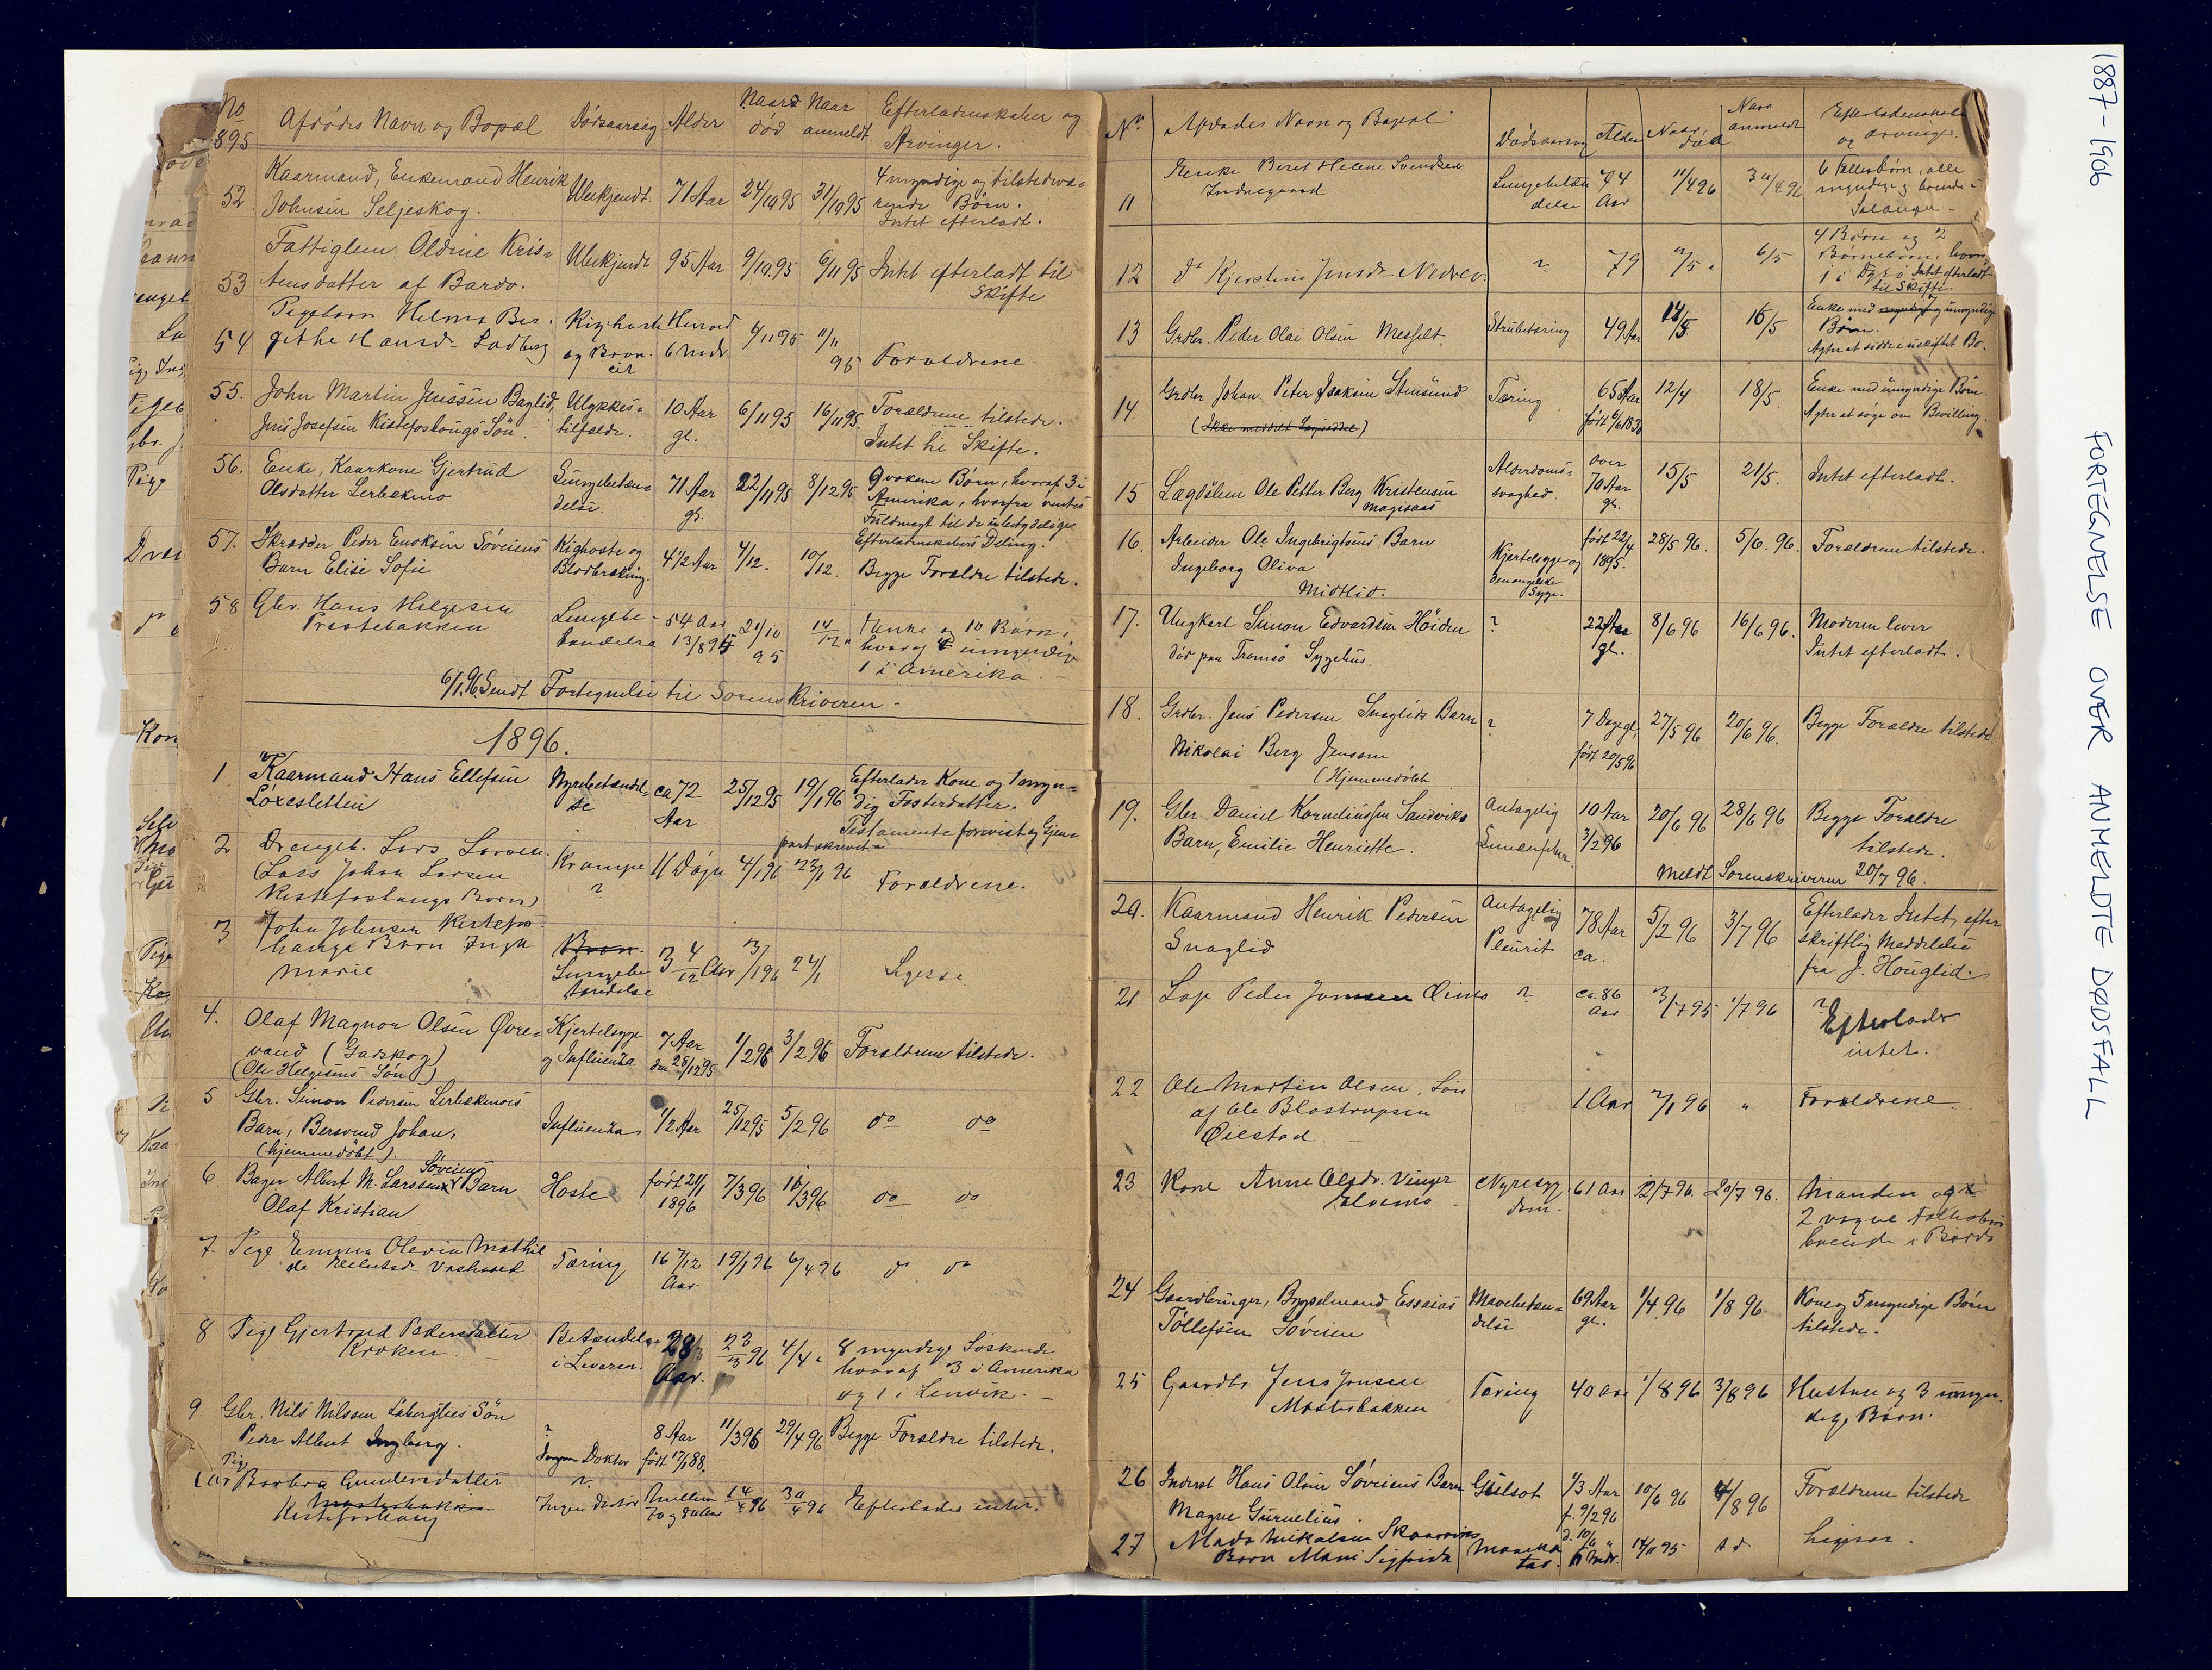 No
895
Afdødes Navn og Bopæl
Dødsaarsag
Alder
Naar
død
Naar
anmeldt
Efterladenskaber og
Arvinger.
52
Kaarmand, Enkemand Henrik
Johnsen Seljeskog.
Ubekjendt.
71 Aar
24/10 95
31/10 95
4 myndige og tilstedevæ-
rende Børn.
Intet efterladt.
53
Fattiglem Oldine Kris-
tensdatter af Bardo.
Ubekjendt
95 Aar
9/10 95
6/11 95
Intet efterladt til
Skifte
54
Pigebarn Helma Ber-
githe Hansd. Ladberg
Kighoste
og Bron-
cit
Henved
6 Mdr.
4/11 95
11/11
95
Forældrene
55.
John Martin Jenssen Baglid,
Jens Josefsen Kistefoshougs Søn.
Ulykkes-
tilfælde.
10 Aar
gl.
6/11 95
16/11 95.
Forældrene tilstede.
Intet til Skifte.
56.
Enke, Kaarkone Gjertrud
Olsdatter Lerbekmo
Lungebetæn-
delse.
71 Aar
gl.
22/11 95
8/12 95
9 voksne Børn, hvoraf 3 i
Amerika, hvorfra ventes
Fuldmagt til de ubetydelige
Efterladenskabers Deling.
57.
Skrædder Peder Enoksen Søveiens
Barn Elise Sofie
Kighoste og
Blodbrækning
4 1/2 Aar
4/12.
10/12.
Begge Forældre tilstede.
58
Gbr. Hans Helgesen
Prestebakken
Lungebe-
tændelse
54 Aar
13/8 95
21/10
95
14/12 "
Enke og 10 Børn,
hvoraf 4 umyndige
1 i Amerika. -
6/1 96 Sendt Fortegnelse til Sorenskriveren -
1896.
1
Kaarmand Hans Ellefsen
Løxesletten
Nyrebetændel-
se
ca 72
Aar
25/12 95
19/1 96
Efterlader Kone og 1 myn-
dig Fosterdatter.
Testamente forevist og Gjen-
partskrevet
2
Drengeb. Lars Larsen
(Lars Johan Larsen
Kistefoshaugs Barn)
Krampe
?
11 Døgn
4/1 96
23/1 96
Forældrene.
3
John Johnsen Kistefos-
haugs Barn Inga
Marie
Lungebe-
tændelse
3 4/12 Aar
13/1 96
24/1
Ligesaa
4.
Olaf Magnor Olsen Øvre-
vand (Garskog)
(Ole Helgesens Søn)
Kjertelsyge
og Influenza
7 Aar
den 28/12 95
1/2 96
3/2 96
Forældrene tilstede.
5
Gbr. Simon Pedersen Lerbekmoes
Barn, Bersvend Johan,
(hjemmedøbt).
Influenza
1/2 Aar
25/12 95
5/2 96
do do
6
Bager Albert M. Larssens Søveiens Barn
Olaf Kristian
Hoste
født 21/1
1896
7/3 96
16/3 96
do do
7.
Pige Emma Olevia Mathil-
de
Tæring
16 7/12
Aar
19/1 96
6/4 96
do do
8
Pige Gjertrud Pedersdatter
Kroken -
Betændelse
i Leveren.
28
Aar.
23/3 96
4/4 "
8 myndige Søskende
hvoraf 3 i Amerika
og 1 i Lenvik. -
9.
Gbr. Nils Nilssen Løbergslies Søn
Peder Albert Ingberg.
?
Ingen Doktor
8 Aar
født 17/1 88.
11/3 96
29/4 96
Begge Forældre tilstede.
Pige
Barbra Gundersdatter
Mosterbakken
Kistefoshaug
?
Ingen doctor
Mellem
70 og 80 Aar
14/4 96
30/4 96
Efterlader intet.
No
Afdødes Navn og Bopæl
Dødsaarsag
Alder
Naar
død
Naar
anmeldt
Efterladenskab
og Arvinger.
11
Enke Beret Helene Svendsen
Indregaard
Lungebetæn-
delse
74
Aar
11/4 96
30/4 96
6 Fællesbørn, alle
myndige og boende i
Salangen -
12
do Kjerstine Jensdr Nedrev.
?
79
2/5 "
6/5
4 Børn og 2
Børnebørn, hvoraf
Intet efterladt
til Skifte.
13
Grdbr. Peder Olai Olsen Messelt.
Strubetæring
49 Aar
14/5
16/5
Enke med myndige og umyndige
Børn.
Agter at sidde i uskiftet Bo.
14.
Grdbr Johan Peter Isaksen Stensund
(Ikke meddelt Lægeseddel)
Tæring
65 Aar
født 6/6 1830
12/4
18/5
Enke med umyndige Børn.
Agter at søge om Bevilling.
15
Lægdslem Ole Petter Berg Kristensen
Magisaas
Alderdoms-
svaghed.
over
70 Aar
gl.
15/5
21/5.
Intet efterladt.
16.
Arbeider Ole Ingebrigtsens Barn
Ingeborg Oliva
Midtlid.
Kjertelsyge og
den engelske
Syge.
født 22/4
1895.
28/5 96.
5/6. 96.
Forældrene tilstede.
17.
Ungkarl Simon Edvardsen Høiden
Død paa Tromsø Sygehus.
?
22 Aar
gl.
8/6 96
16/6 96.
Moderen lever
Intet efterladt.
18.
Grdbr. Jens Pedersen Snoglids Barn
Nikolai Berg Jenssen
(Hjemmedøbt
?
7 Dage gl,
født 20/5 96
27/5 96
20/6 96.
Begge Forældre tilstede
19.
Gbr. Daniel Korneliussen Sandviks
Barn, Emilie Henriette.
Antagelig
10 Aar
3/2 96
20/6 96
28/6 96
Begge Forældre
tilstede.
Meldt Sorenskriveren 20/7 96.
20.
Kaarmand Henrik Pedersen
Snoglid
Antagelig
Pleurit
78 Aar
ca.
5/2 96
3/7 96
Efterlader Intet, efter
skriftlig Meddelelse
fra J. Houglid.
21
Lap Peder Jonsen Oines
?
ca. 86
Aar
3/7 95
1/7 96
?
Efterlader
intet.
22
Ole Martin Olsen, Søn
af Ole Blostrupsen
Øiestad. -
1 Aar
2/1 96
"
Forældrene.
23
Kone Anne Olsdr. Vinger
Elvemo
Nyresyg-
dom.
61 Aar
12/7 96.
20/7 96.
Manden og
2 voxne Fællesbørn
boende i Bardo
24
Gaardbruger, Bygselmand Essaias
Tollefsen Søveien
Mavebetæn-
delse
69 Aar
gl.
1/4 96
1/8 96
Kone og 5 myndige Børn
tilstede.
25
Gaardbr Jens Jonsen
Mosterbakken
Tæring
40 Aar
1/8 96
3/8 96
Hustru og 3 umyn-
dige Børn.
26
Inderst Hans Olsen Søveiens Barn
Magne Gurnelius.
Gulsot
1/3 Aar
f. 9/2 96
d. 10/6 "
10/6 96
4/8 96
Forældrene tilstede
27
Mads Mikalsen
Barn Mani Sigfrida
14/11 95
s. d.
Ligesaa.
1887-1906 FORTEGNELSE OVER ANMELDTE DØDSFALL